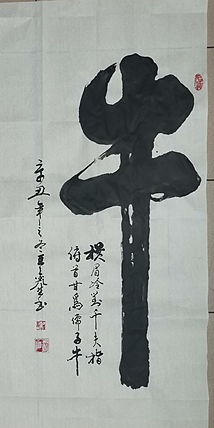 牛
横眉冷对千夫指
俯首甘为孺子牛
辛丑年之
书